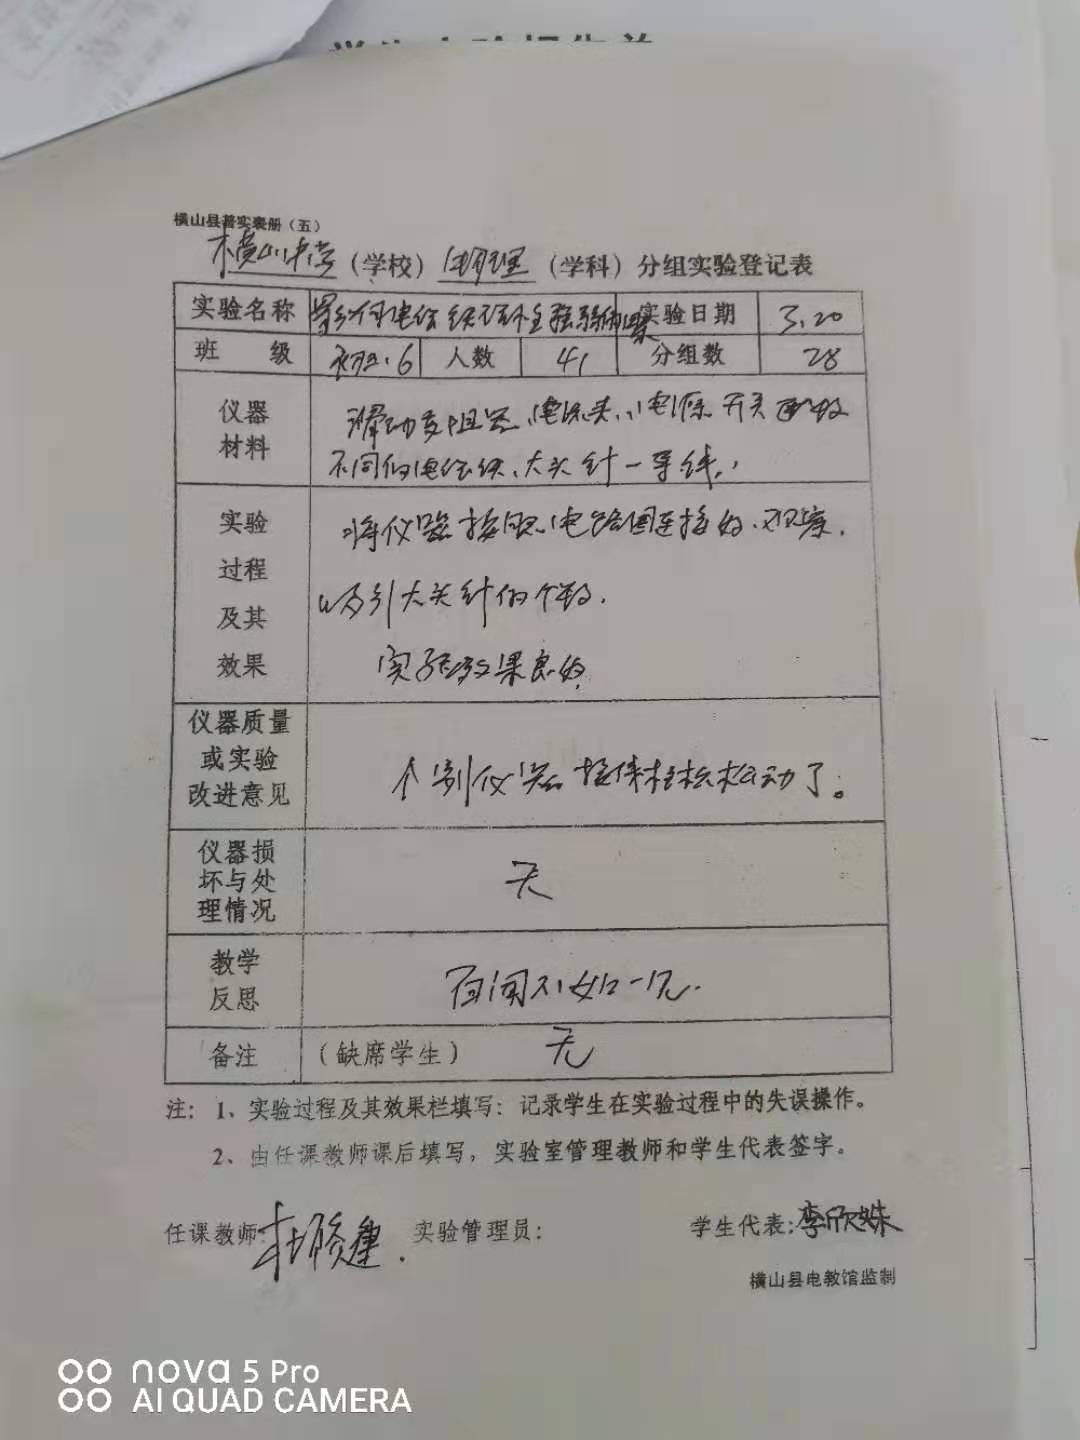 横山县普实表册（五）
横山中学（学校）物理（学科）分组实验登记表
实验名称 实验日期 3.20
班 级 初三.6 人数 41 分组数 28
仪器 滑动变阻器、电流表、电源 开关 匝数
材料 不同的电磁铁、大头针 导线
实验 将仪器按照电路图连接好、观察，
过程
及其 吸引大头针的个数.
效果 实验效果良好
仪器质量
或实验 个别仪器接线柱松动了。
改进意见
仪器损
坏与处 无
理情况
教学
反思 百闻不如一见.
备注 （缺席学生） 无
注: 1、实验过程及其效果栏填写: 记录学生在实验过程中的失误操作。
2、由任课教师课后填写，实验室管理教师和学生代表签字。
任课教师: 实验管理员: 学生代表:李欣姝
横山县电教馆监制
nova 5 Pro
AI QUAD CAMERA